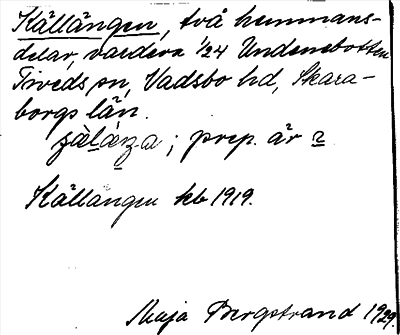 Källängen, två hemmans-
delar, vardera 1/24 Undenebotten
Tiveds sn, Vadsbo hd, Skara-
borgs län.
prep. är
Källängen kb 1919.
Maja Bergstrand 1929.